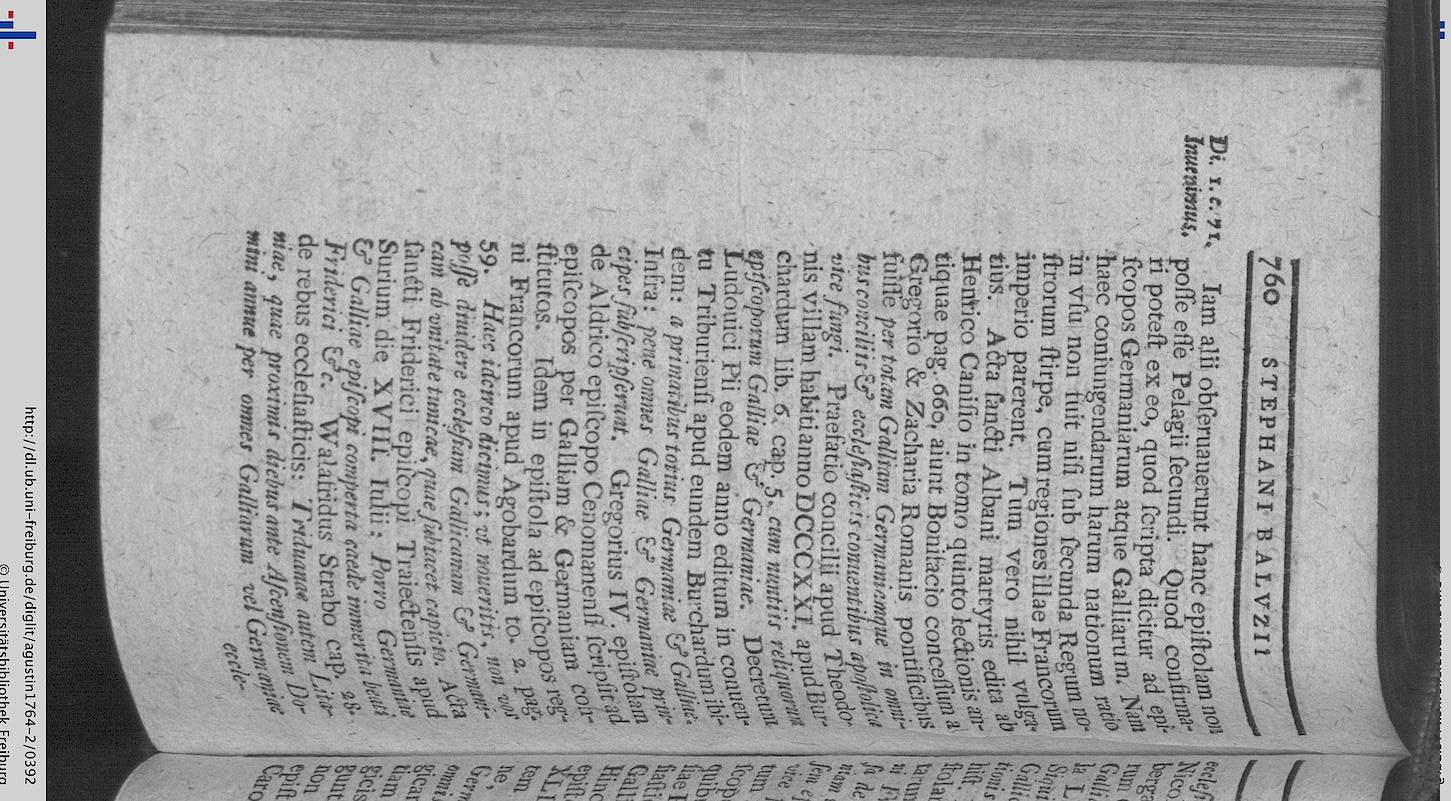 760 STEPHANI BALVZII
Di. 1. c. 71.
Inuenimus.
Iam alii obseruauerunt hanc epistolam non
posse esse Pelagii secundi. Quod confirma-
ri potest ex eo, quod scripta dicitur ad epi-
scopos Germaniarum atque Galliarum. Nam
haec coniungendarum harum nationum ratio
in vsu non fuit nisi sub secunda Regum no-
strorum stirpe, cum regiones illae Francorum
imperio parerent. Tum vero nihil vulga-
tius. Acta sancti Albani martyris edita ab
Henrico Canisio in tomo quinto lectionis an-
tiquae pag. 660, aiunt Bonifacio concessum a
Gregorio & Zacharia Romanis pontificibus
fuisse per totam Galliam Germaniamque in omni-
bus conciliis & ecclesiasticis conuentibus apostolica
vice fungi. Praefatio concilii apud Theodo-
nis villam habiti anno DCCCXXI, apud Bur-
chardum lib. 6. cap. 5. cum nuntiis reliquorum
episcoporum Galliae & Germaniae. Decretum
Ludouici Pii eodem anno editum in conuen-
tu Triburiensi apud eundem Burchardum ib-
dem: a primatibus totius Germaniae & Galliae.
Infra: pene omnes Galliae & Germaniae prin-
cipes subscripserunt. Gregorius IV. epistolam
de Aldrico episcopo Cenomanensi scripsit ad
episcopos per Galliam & Germaniam con-
stitutos. Idem in epistola ad episcopos reg-
ni Francorum apud Agobardum to. 2. pag.
59. Haec idcirco dicimus; vt noueritis, non vos
posse diuidere ecclesiam Gallicanam & Germani-
cam ab vnitate tunicae, quae subiacet capiti. Acta
sancti Friderici episcopi Traiectensis apud
Surium die XVIII. Iulii: Porro Germaniae
& Galliae episcopi comperta caede immerita beati
Friderici &c. Walafridus Strabo cap. 28.
de rebus ecclesiasticis: Triduanae autem Lita-
niae, quae proximis diebus ante Ascensionem Do-
mini annue per omnes Galliarum vel Germaniae
eccle-
http://dl.ub.uni-freiburg.de/diglit/agustin1764-2/0392
© Universitätsbibliothek Freiburg